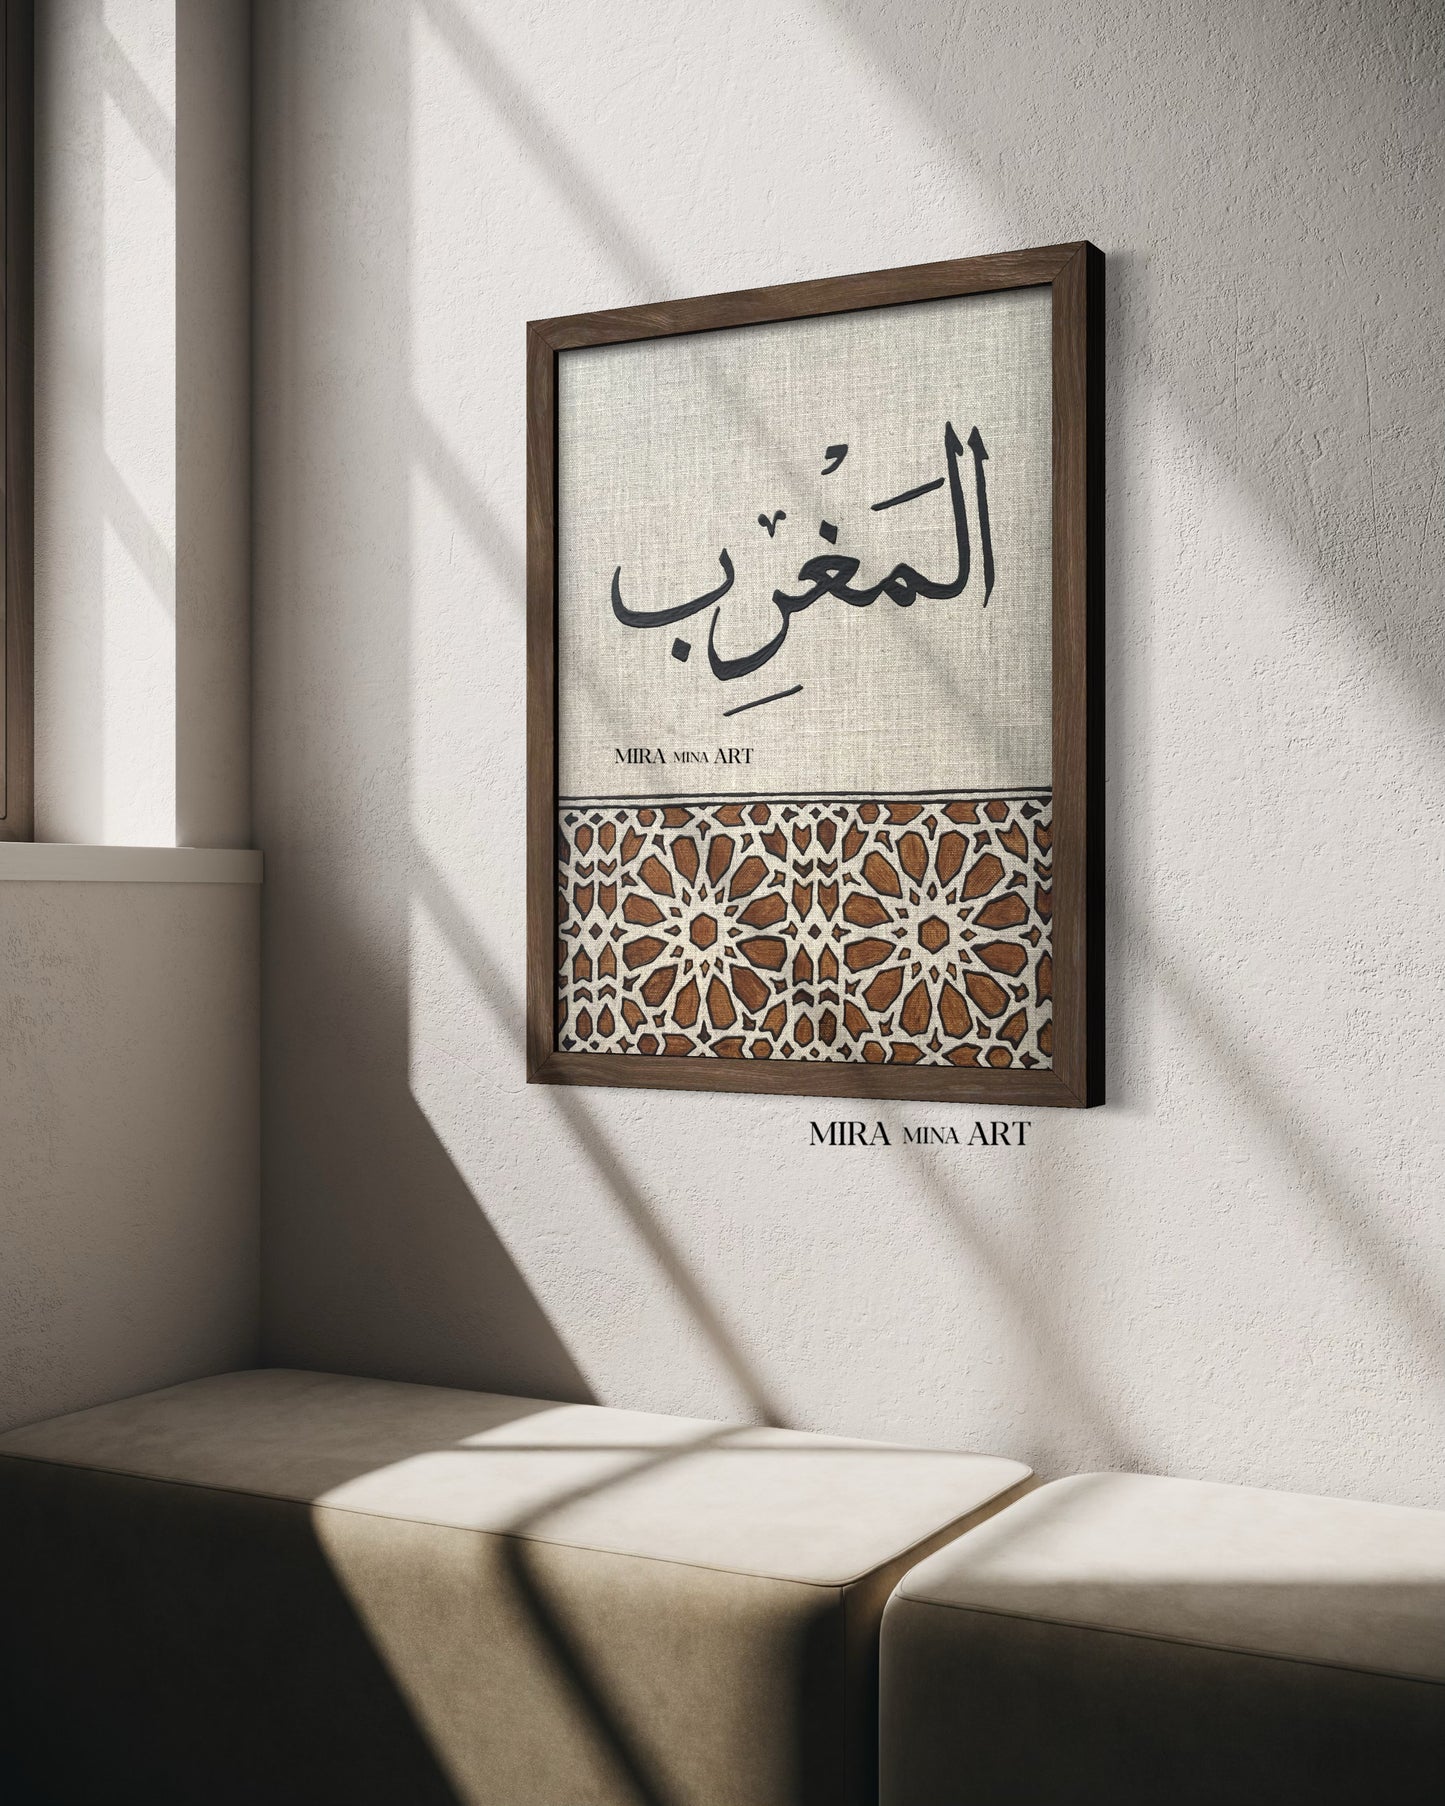 المَغْرِب
MIRA MINA ART
MIRA MINA ART